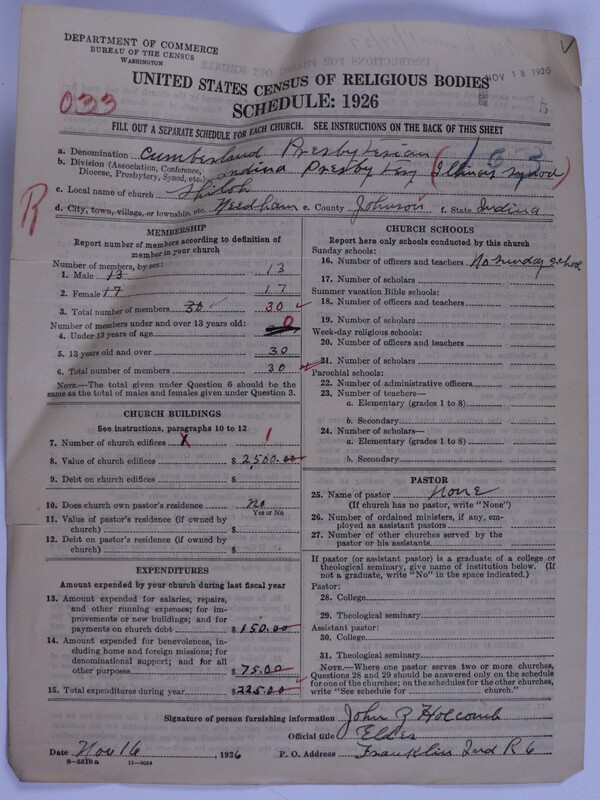 DEPARTMENT OF COMMERCE
BUREAU OF THE CENSUS
WASHINGTON
UNITED STATES CENSUS OF RELIGIOUS BODIES
NOV 18 1926
SCHEDULE: 1926
033
FILL OUT A SEPARATE SCHEDULE FOR EACH CHURCH. SEE INSTRUCTIONS ON THE BACK OF THIS SHEET
a. Denomination Cumberland Presbyterian
b. Division (Association, Conference, Diocese, Presbytery, Synod, etc.) Indina Presbytery (Illinois Synod)
c. Local name of church Shiloh
d. City, town, village, or township, etc. Needham e. County Johnson f. State Indina
R
MEMBERSHIP
Report number of members according to definition of
member in your church
Number of members, by sex:
1. Male 13 13
2. Female 17 17
3. Total number of members 30 30
Number of members under and over 13 years old:
4. Under 13 years of age 0
5. 13 years old and over 30
6. Total number of members 30
NOTE.—The total given under Question 6 should be the
same as the total of males and females given under Question 3.
CHURCH BUILDINGS
See instructions, paragraphs 10 to 12
7. Number of church edifices 1
8. Value of church edifices $ 2,500.00
9. Debt on church edifices $
10. Does church own pastor's residence No
Yes or No
11. Value of pastor's residence (if owned by
church) $
12. Debt on pastor's residence (if owned by
church) $
EXPENDITURES
Amount expended by your church during last fiscal year
13. Amount expended for salaries, repairs,
and other running expenses; for im-
provements or new buildings; and for
payments on church debt $ 150.00
14. Amount expended for benevolences, in-
cluding home and foreign missions; for
denominational support; and for all
other purposes $ 75.00
15. Total expenditures during year $ 225.00
CHURCH SCHOOLS
Report here only schools conducted by this church
Sunday schools:
16. Number of officers and teachers No sunday school
17. Number of scholars
Summer vacation Bible schools:
18. Number of officers and teachers
19. Number of scholars
Week-day religious schools:
20. Number of officers and teachers
21. Number of scholars
Parochial schools:
22. Number of administrative officers
23. Number of teachers—
a. Elementary (grades 1 to 8)
b. Secondary
24. Number of scholars—
a. Elementary (grades 1 to 8)
b. Secondary
PASTOR
25. Name of pastor None
(If church has no pastor, write "None")
26. Number of ordained ministers, if any, em-
ployed as assistant pastors
27. Number of other churches served by the
pastor or his assistants
If pastor (or assistant pastor) is a graduate of a college or
theological seminary, give name of institution below. (If
not a graduate, write "No" in the space indicated.)
Pastor:
28. College
29. Theological seminary
Assistant pastor:
30. College
31. Theological seminary
NOTE.—Where one pastor serves two or more churches,
Questions 28 and 29 should be answered only on the schedule
for one of the churches; on the schedules for the other churches,
write "See schedule for church."
Signature of person furnishing information John Z Holcomb
Official title Elder
Date Nov 16, 1926 P. O. Address Franklin Ind R 6
8-5518 a 11-9034